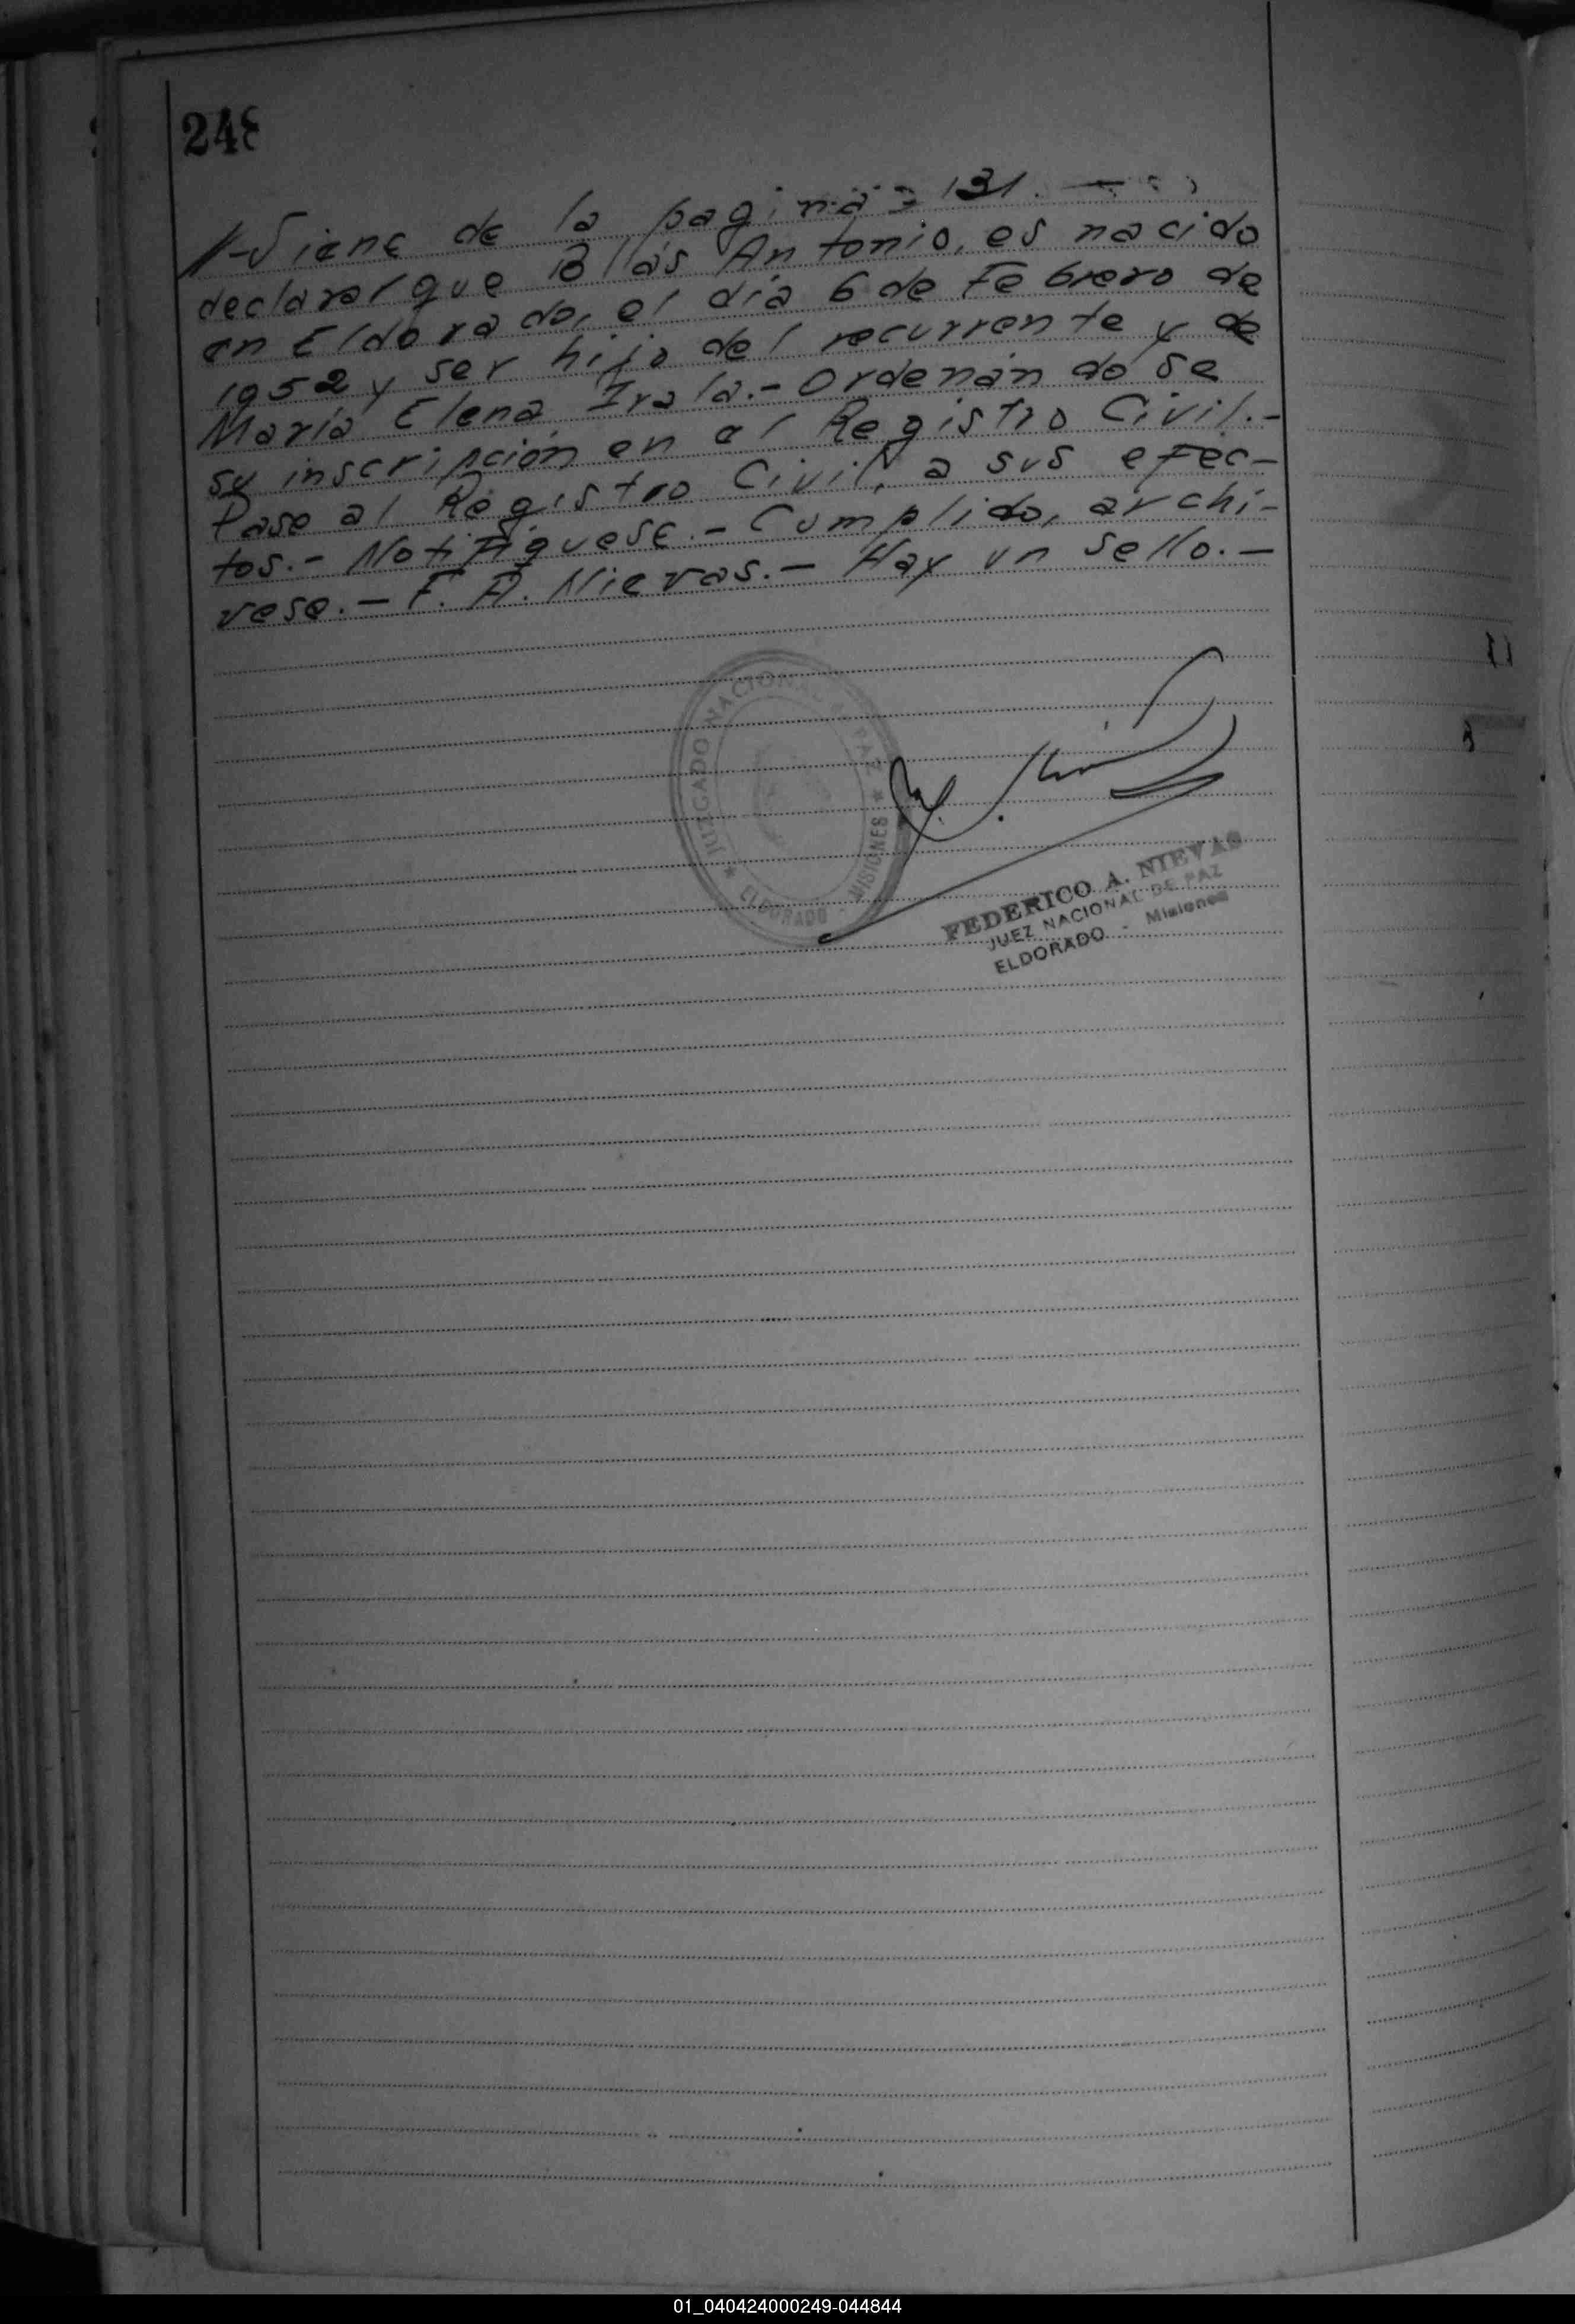 248
//-Viene de la pagina = 131. —
declarar que Blás Antonio, es nacido
en Eldorado, el día 6 de Febrero de
1952 y ser hijo del recurrente y de
María Elena Irala.- Ordenándose
su inscripción en el Registro Civil.-
Pase al Registro Civil, a sus efec-
tos.- Notifíquese.- Cumplido, archi-
vese.- F. A. Nievas.- Hay un sello.-
JUZGADO NACIONAL DE PAZ
* ELDORADO - MISIONES *
FEDERICO A. NIEVAS
JUEZ NACIONAL DE PAZ
ELDORADO - Misiones
01_040424000249-044844